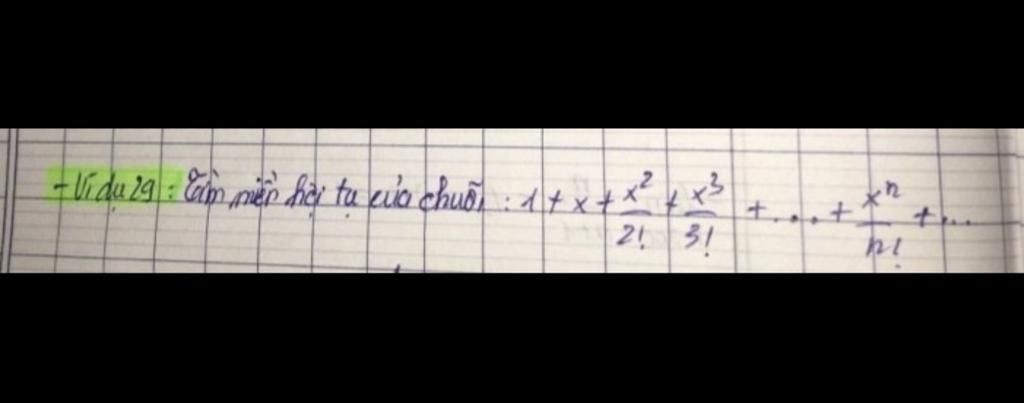 - Ví dụ 29: Tìm miền hội tụ của chuỗi: 1 + x + x²/2! + x³/3! + ... + xⁿ/n! + ...